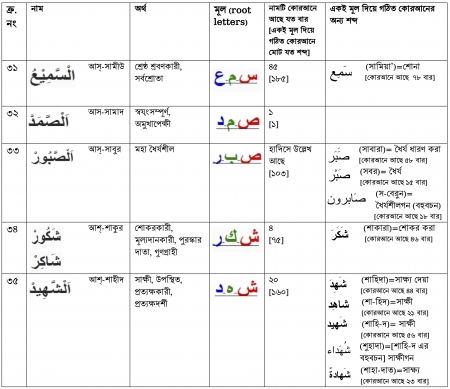 ক্র. নং | নাম | অর্থ | মূল (root letters) | নামটি কোরআনে আছে যত বার [একই মূল দিয়ে গঠিত কোরআনে মোট যত শব্দ] | একই মূল দিয়ে গঠিত কোরআনের অন্য শব্দ
৩১ | اَلْسَّمِيْعُ আস্-সামীউ | শ্রেষ্ঠ শ্রবণকারী, সর্বশ্রোতা | س م ع | ৪৫ [১৮৫] | سَمِعَ (সামিয়া')=শোনা [কোরআনে আছে ৭৮ বার]
৩২ | اَلْصَّمَدُ আস-সামাদ | স্বয়ংসম্পূর্ণ, অমুখাপেক্ষী | ص م د | ১ [১]
৩৩ | اَلْصَّبُوْرُ আস-সাবুর | মহা ধৈর্যশীল | ص ب ر | হাদিসে উল্লেখ আছে [১০৩] | صَبَرَ (সাবারা)= ধৈর্য ধারণ করা [কোরআনে আছে ৫৮ বার]
صَبْر (সবর)= ধৈর্য [কোরআনে আছে ১৫ বার]
صَابِرون (স-বেরুন)= ধৈর্যশীলগন (বহুবচন) [কোরআনে আছে ১৮ বার]
৩৪ | شَكُوْرُ شَاكِرْ আশ্-শাকুর | শোকরকারী, মূল্যদানকারী, পুরস্কার দাতা, গুণগ্রাহী | ش ك ر | ৪ [৭৫] | شَكَرَ (শাকারা)=শোকর করা [কোরআনে আছে ৪৬ বার]
৩৫ | اَلْشَّهِيْدُ আশ্-শাহীদ | সাক্ষী, উপস্থিত, প্রত্যক্ষকারী, প্রত্যক্ষদর্শী | ش ه د | ২০ [১৬০] | شَهِدَ (শাহিদা)=সাক্ষ্য দেয়া [কোরআনে আছে ৪৪ বার]
شَاهِد (শা-হিদ)=সাক্ষী [কোরআনে আছে ২১ বার]
شَهِيد (শাহি-দ)= সাক্ষী [কোরআনে আছে ৫৬ বার]
شُهَدَاء (শুহাদা)=[শাহি-দ এর বহুবচন] সাক্ষীগন
شَهَادَة (শাহা-দাত)=সাক্ষ্য [কোরআনে আছে ২৩ বার]